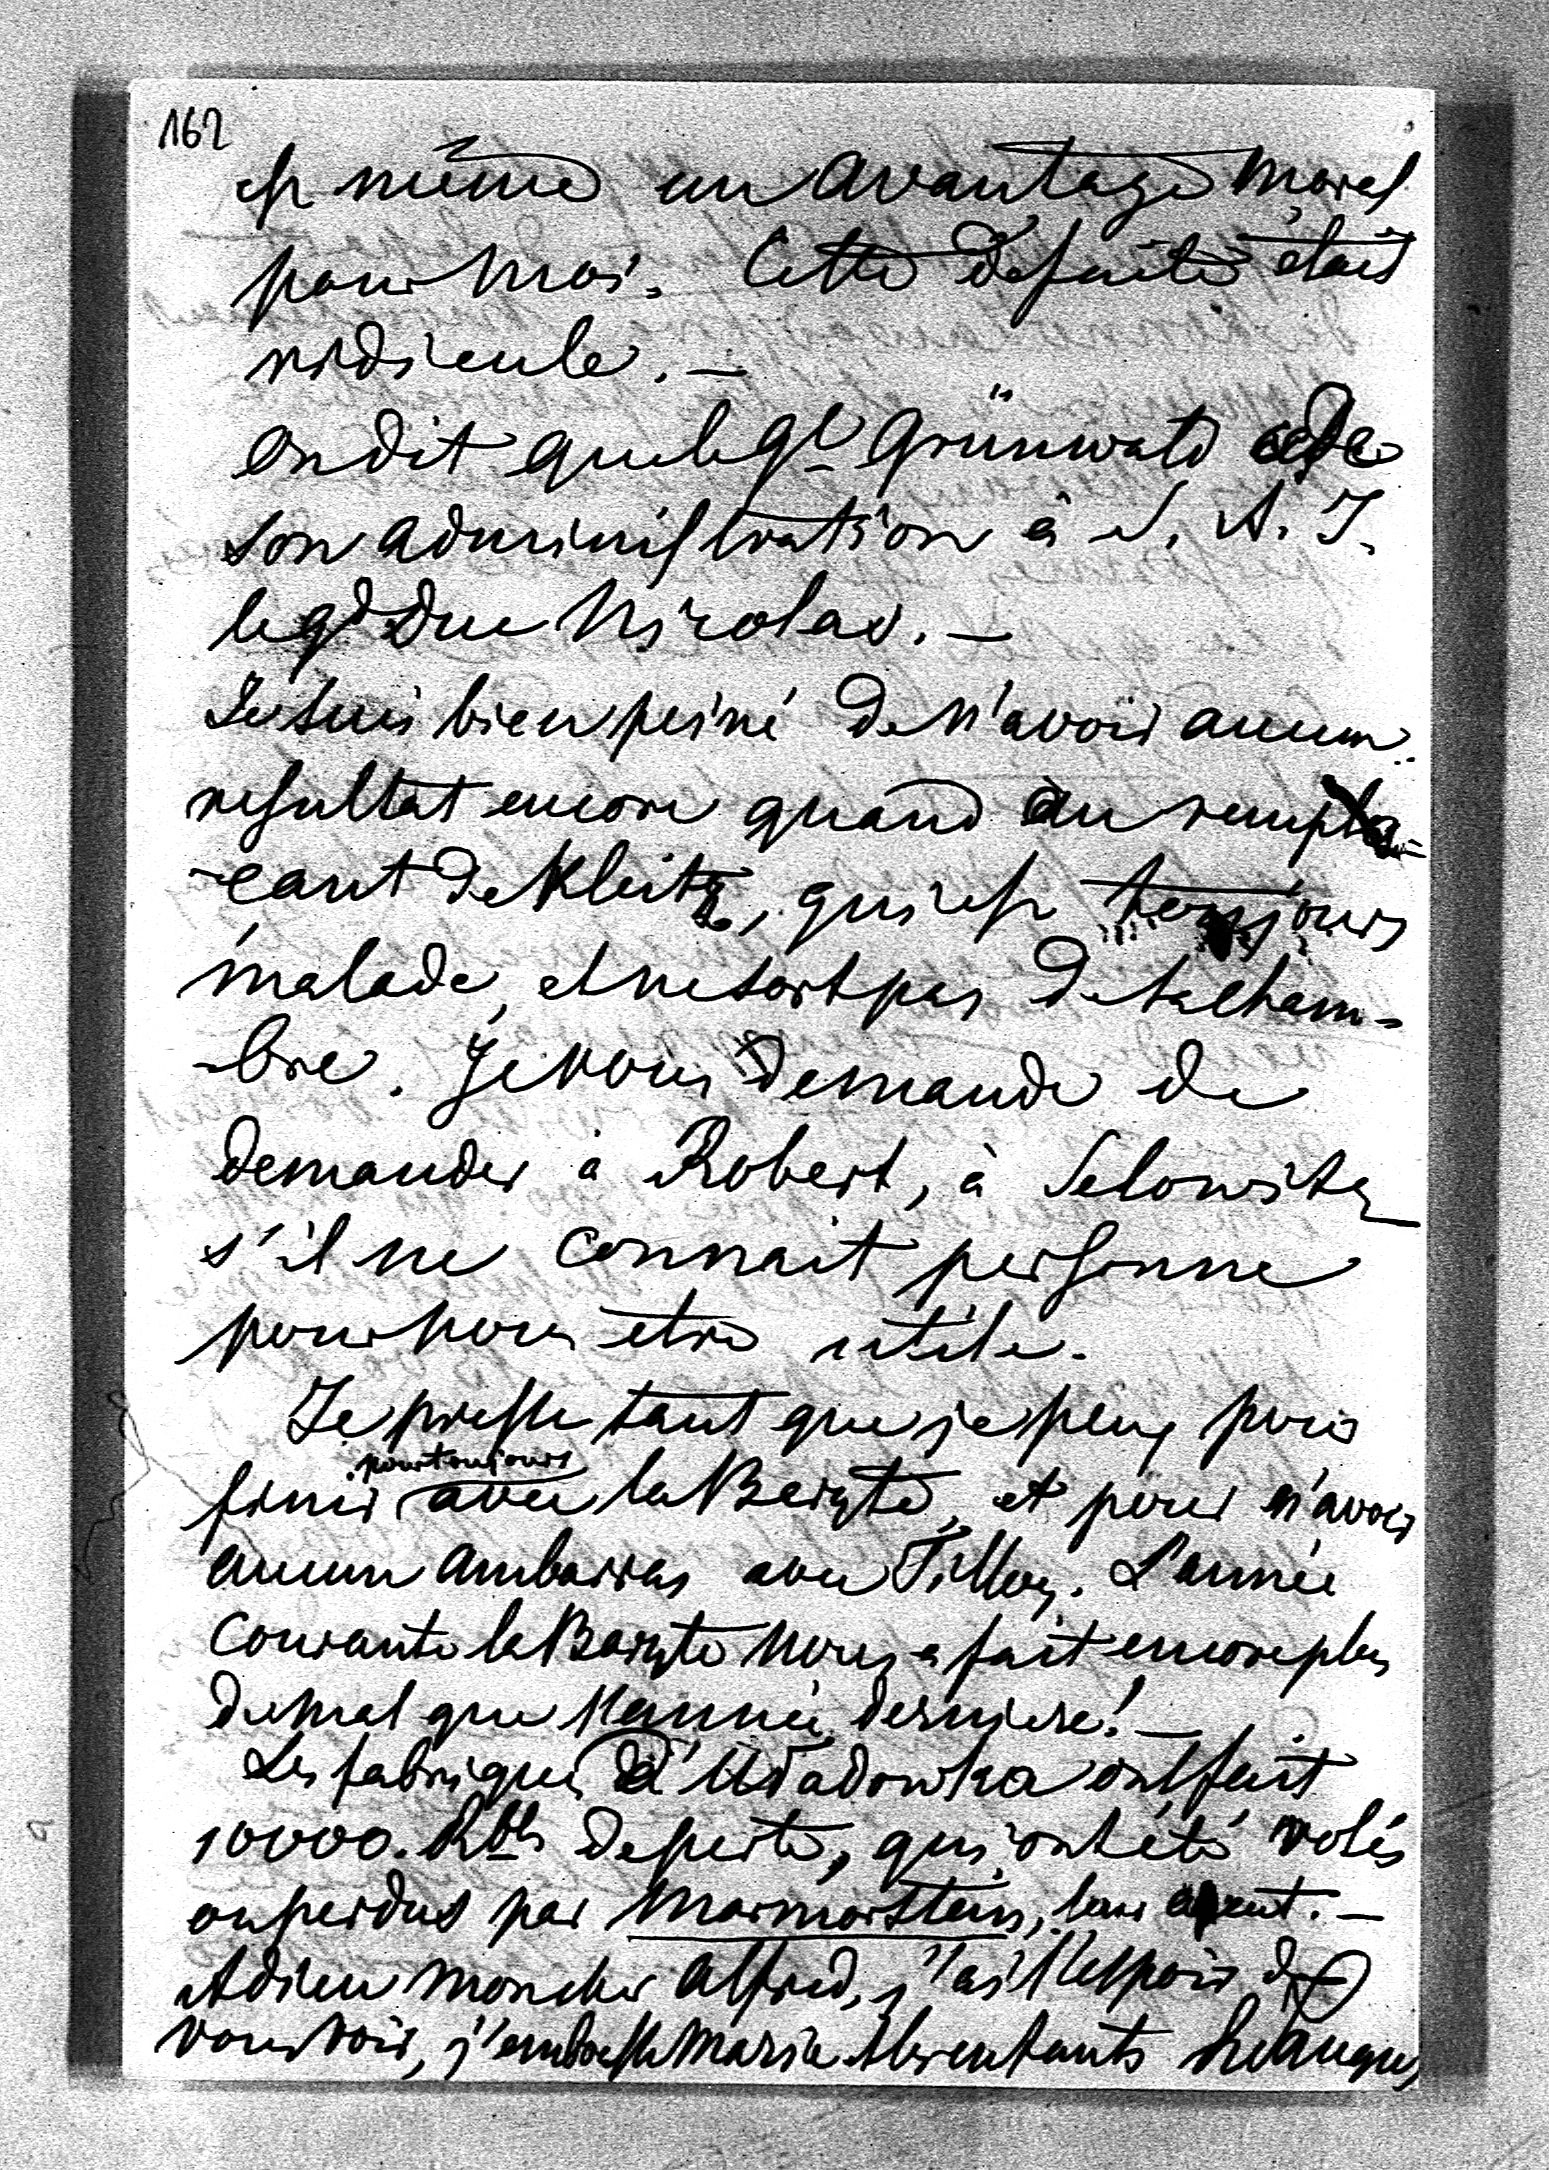 162
est même un avantage moral
pour moi. Cette défaite était
ridicule. —
on dit que le gl Grünwald cède
son administration à S. A. I.
le gd Duc Nicolas. —
Je suis bien peiné de n'avoir aucun
resultat encore quand au rempla-
-cant de Kleitz, qui est toujours
malade, et ne sort pas de sa cham-
-bre. Je vous demande de
demander à Robert, à Selowitz
s'il ne connait personne
pour nous etre utile.
Je presse tant que je peux pour
pour toujours
finir avec la Baryte, et pour n'avoir
aucun ambarras avec Tilloy. L'année
courante la Baryte nous a fait encore plus
de mal que l'année derniere! —
Les fabriques d'Udadowka ont fait
10000. Rbls de perte, qui ont été volés
ou perdus par Marmorstein, leur agent. —
Adieu mon cher Alfred, j'ai l'espoir de
vous voir, j'embrasse Marie et les enfants